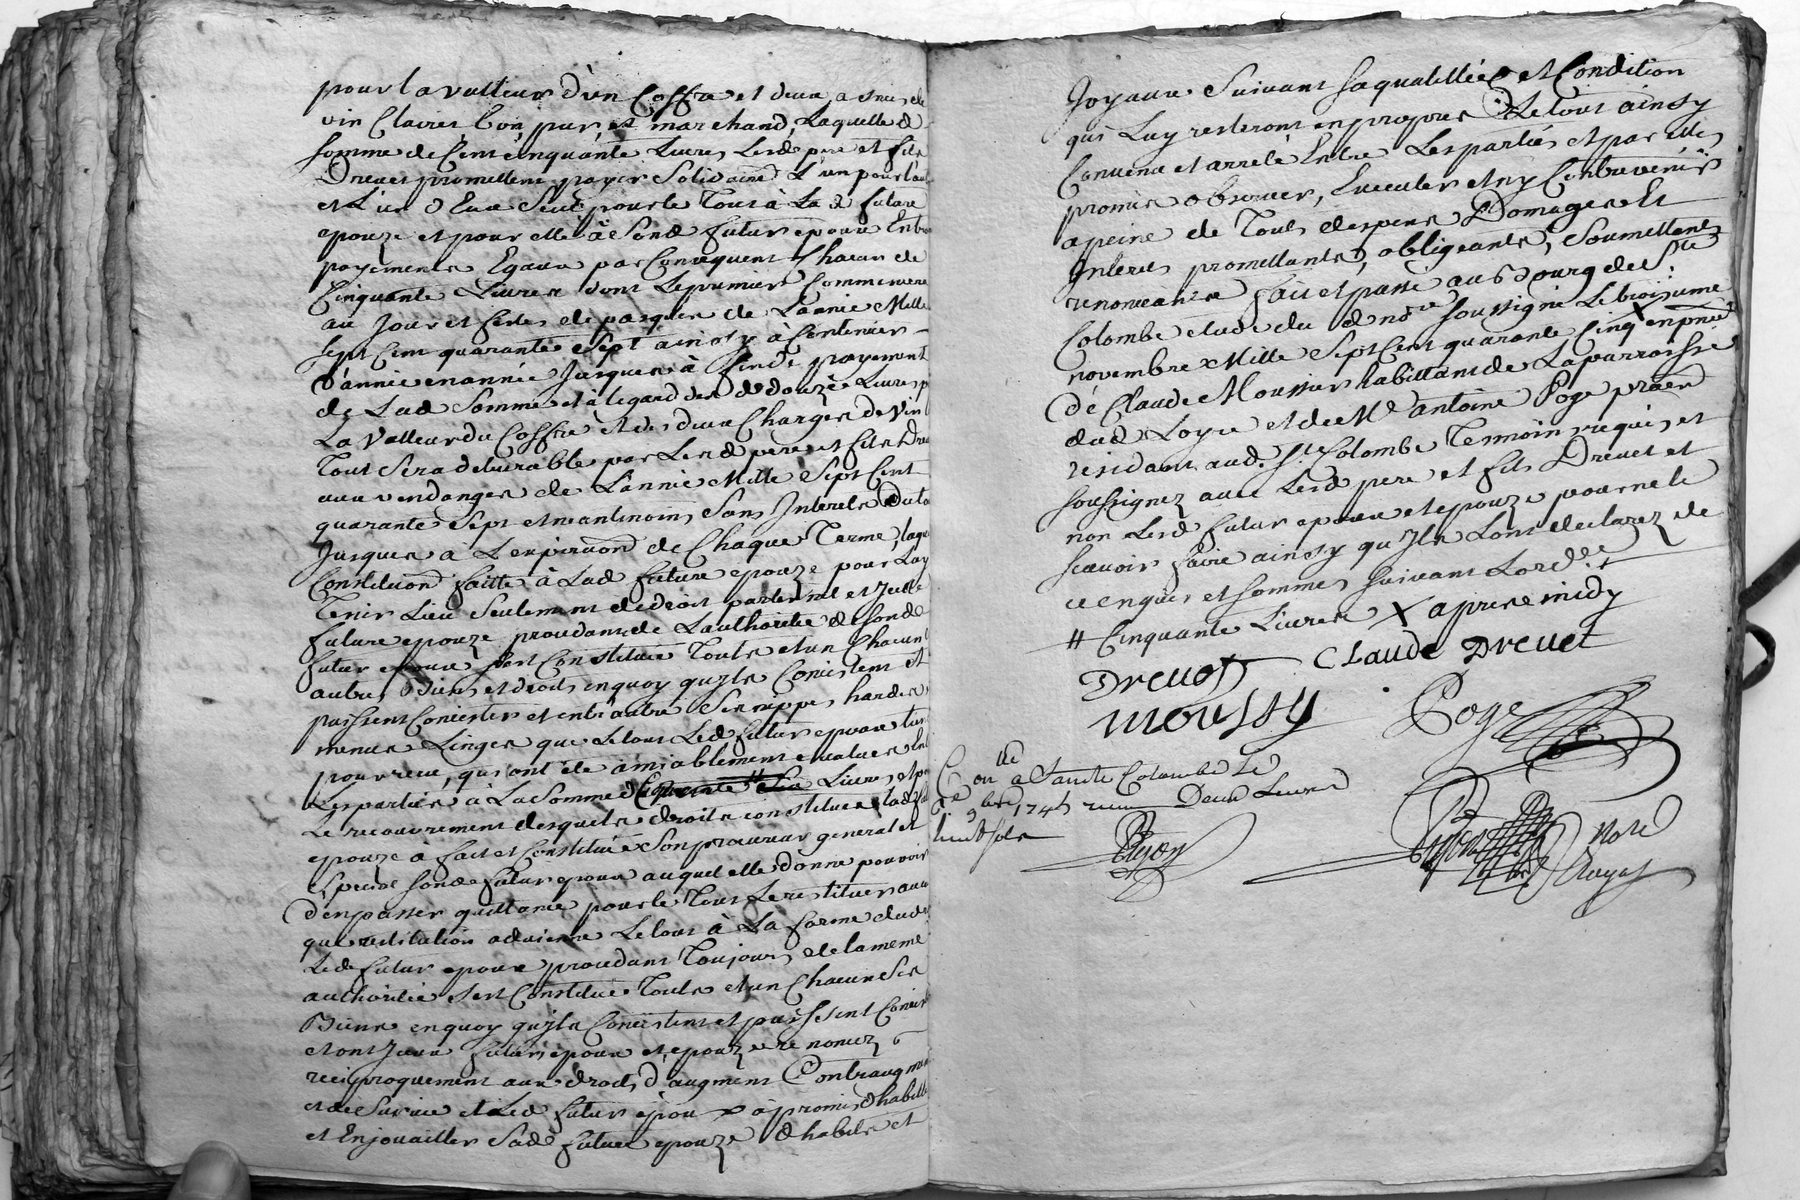 pour la valleur d'un Coffre et deux asnées de
vin Clairet bon, pur, et marchand, Laquelle d
somme de Cent cinquante Livres Lesd pere et fils
Drevet promettent payer Solidairemt L'un pour l'au
et L'un d'Eux Seul pour le Tout à Lad future
epouze et pour elle à Sond futur epoux En
payements Egaux par Consequent Chacun de
Cinquante Livres dont Le premier Commencera
au Jour et festes de pasques de Lannée Mille
sept Cent quarante Sept ainsy à Continuer
d'année en année Jusques à fin de payement
de Lad Somme et à legard des d douze Livres p
La Valleur du Coffre et des deux Charges de Vin
Tout Sera delivrable par Lesd pere et fils Dre
aux vendanges de Lannée Mille Sept Cent
quarante Sept et neantmoins Sans Interets du to
Jusques à L'expiraon de Chaque Terme, laqu
Constituaon faitte à Lad future epouze pour Luy
Tenir Lieu Seulement de droit paternel et Icelle
future epouze procedant de Lauthorité de Sond
futur epoux s'est Constituée Touts et un Chacun
autres Biens et droits en quoy qu'ils Consistent et
puissent Consister et entr'autre Ses nippes, hardes
menus Linges que le tout Led futur epoux tien
pour receu, qui ont été amiablement evalués En
Les parties à La Somme de Livres, et p
Le recouvrement desquels droits constitués lad
epouze à fait et Constitué Son procureur general et
special Sond futur epoux auquel elle donne pouvoir
d'en passer quittance pour le Tout Le restituer au c
que restitution advienne Le tout à La forme du d
Led futur epoux procedant Toujours de la meme
authorité s'est Constitué Touts et un Chacun Ses
Biens en quoy qu'ils Consistent et puissent Consis
et ont Iceux futurs epoux et epouze renoncez
reciproquement aux droits d'augment Contraugment
et de Survie et Led futur epoux à promis d'habill
et Enjouailler Sad future epouze d'habits et
Joyaux Suivant Sa qualittée et Condition
qui Luy resteront en propres Le tout ainsy
Convenu et arreté Entre Les parties et par elles
promis observer, Executer et n'y Contrevenir
a peine de Touts despens Domages Et
Interets promettants, obligeants, Soumettants
renonceants fait et passé au Bourg de Ste
Colombe etude du d nore soussigné Le troisieme
novembre Mille Sept Cent quarante Cinq X en pnce
de Claude Moussier habittant de La parroisse
dud Loyre et de Me antoine Poge praen
residant aud. St Colombe Temoins requis et
soussignez avec Lesd pere et fils Drevet et
non Lesd futur epoux et epouze pour ne le
sçavoir faire ainsy qu'Ils L'ont declarez de
ce enquis et sommes suivant Lordce
# Cinquante Livres X apres midy
Drevet Claude Drevet
moussy Poge
Conlé a Sainte Colombe Le
9bre 1745 receu Deux Livres
huit sols
Bruyon
Bruyon Nore
Royal